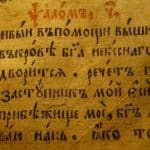 Ѱалом, ч҃.
ивыи въпомощи вышн
въкровѣ бг҃а небеснаг
дворитсѧ. речетъ г
заступникъ мои еси
прибѣжище мое, бг҃ъ
ваю нань, ꙗко то